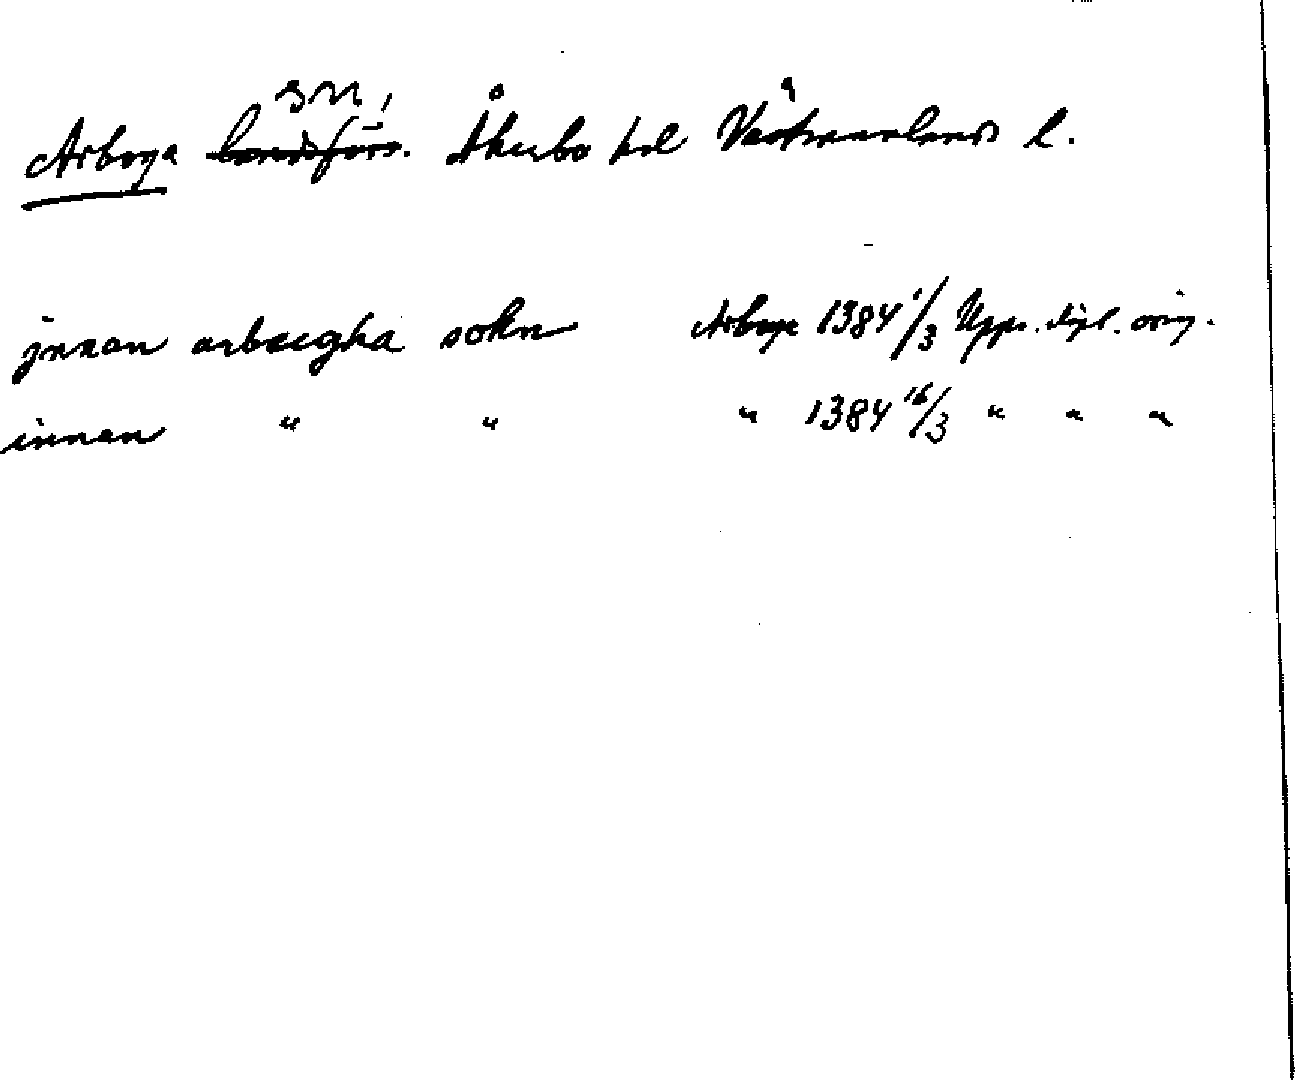 sn,
Arboga landsförs. Åkerbo hd Västmanlands l.
jnnan arbœgha sokn Arboga 1384 1/3 Upps. dipl. orig.
innan " " " 1384 16/3 " " "